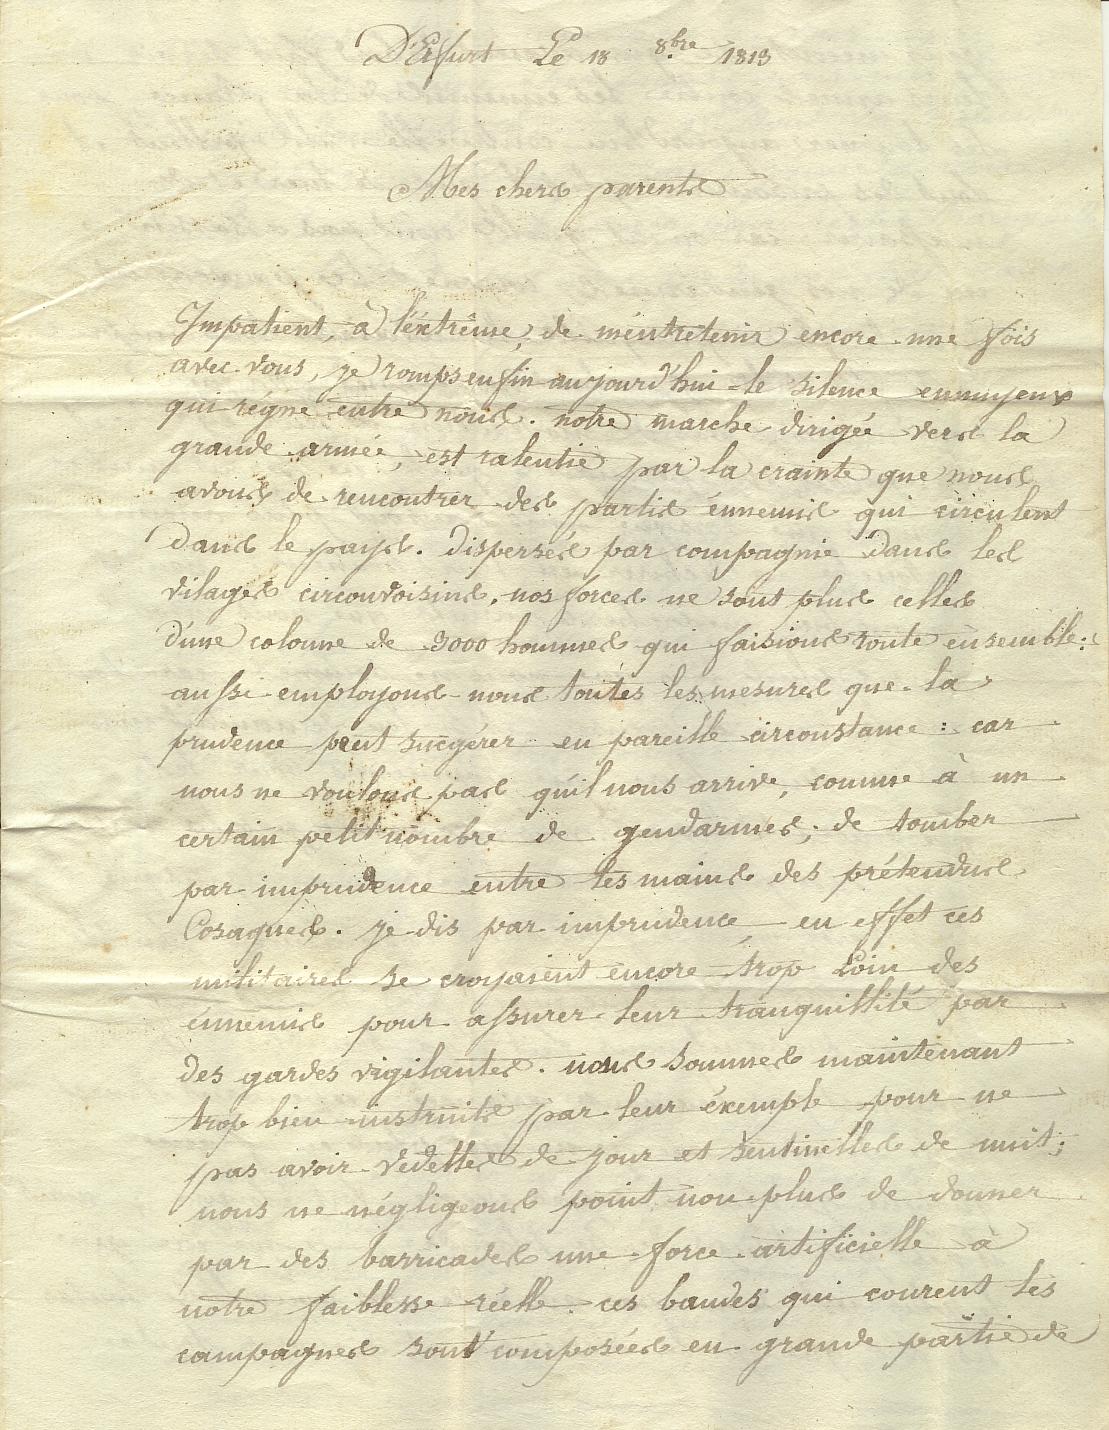 D'Erfurt Le 18 8.bre 1813
Mes chers parents
Impatient, à l'éxtrême, de m'éntretenir èncore une fois
avec vous, je romps enfin aujourd'hui le silence ennuyeux
qui régne entre nous. notre marche dirigée vers la
grande armée, est ralentie par la crainte que nous
avons de rencontrer des partis énnemis qui circulent
dans le pays. dispersés par compagnie dans les
vilages circonvoisins, nos forces ne sont plus celles
d'une colonne de 3000 hommes qui faisions route ensemble:
aussi employons-nous toutes les mesures que la
prudence peut sucgérer en pareille circonstance : car
nous ne voulons pas qu'il nous arrive, comme à un
certain petit nombre de gendarmes, de tomber
par imprudence entre les mains des prétendus
Cosaques. je dis par imprudence, en effet ces
militaires se croyaient encore trop loin des
énnemis pour assurer leur tranquillité par
des gardes vigilantes. nous sommes maintenant
trop bien instruits par leur éxemple pour ne
pas avoir vedettes de jour et sentinelles de nuit;
nous ne négligeons point non plus de donner
par des barricades une force artificielle à
notre faiblesse réelle. ces bandes qui courent les
campagnes sont composées en grande partie de